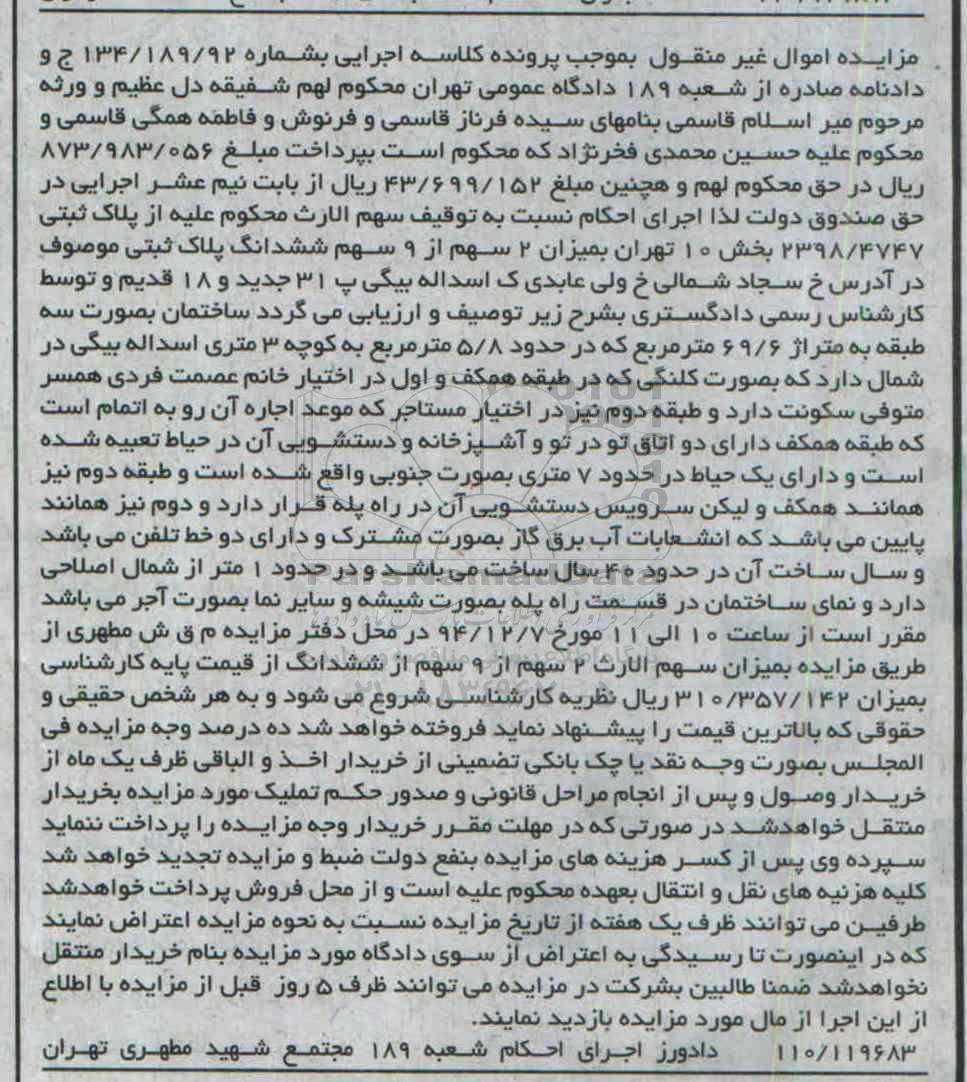 مزایده اموال غیر منقول بموجب پرونده کلاسه اجرایی بشماره ۱۳۴/۱۸۹/۹۲ ج و
دادنامه صادره از شعبه ۱۸۹ دادگاه عمومی تهران محکوم لهم شفیقه دل عظیم و ورثه
مرحوم میر اسلام قاسمی بنامهای سیده فرناز قاسمی و فرنوش و فاطمه همگی قاسمی و
محکوم علیه حسین محمدی فخرنژاد که محکوم است بپرداخت مبلغ ۸۷۳/۹۸۳/۰۵۶
ریال در حق محکوم لهم و هچنین مبلغ ۴۳/۶۹۹/۱۵۲ ریال از بابت نیم عشر اجرایی در
حق صندوق دولت لذا اجرای احکام نسبت به توقیف سهم الارث محکوم علیه از پلاک ثبتی
۲۳۹۸/۴۷۴۷ بخش ۱۰ تهران بمیزان ۲ سهم از ۹ سهم ششدانگ پلاک ثبتی موصوف
در آدرس خ سجاد شمالی خ ولی عابدی ک اسداله بیگی پ ۳۱ جدید و ۱۸ قدیم و توسط
کارشناس رسمی دادگستری بشرح زیر توصیف و ارزیابی می گردد ساختمان بصورت سه
طبقه به متراژ ۶۹/۶ مترمربع که در حدود ۵/۸ مترمربع به کوچه ۳ متری اسداله بیگی در
شمال دارد که بصورت کلنگی که در طبقه همکف و اول در اختیار خانم عصمت فردی همسر
متوفی سکونت دارد و طبقه دوم نیز در اختیار مستاجر که موعد اجاره آن رو به اتمام است
که طبقه همکف دارای دو اتاق تو در تو و آشپزخانه و دستشویی آن در حیاط تعبیه شده
است و دارای یک حیاط در حدود ۷ متری بصورت جنوبی واقع شده است و طبقه دوم نیز
همانند همکف و لیکن سرویس دستشویی آن در راه پله قرار دارد و دوم نیز همانند
پایین می باشد که انشعابات آب برق گاز بصورت مشترک و دارای دو خط تلفن می باشد
و سال ساخت آن در حدود ۴۰ سال ساخت می باشد و در حدود ۱ متر از شمال اصلاحی
دارد و نمای ساختمان در قسمت راه پله بصورت شیشه و سایر نما بصورت آجر می باشد
مقرر است از ساعت ۱۰ الی ۱۱ مورخ ۹۴/۱۲/۷ در محل دفتر مزایده م ق ش مطهری از
طریق مزایده بمیزان سهم الارث ۲ سهم از ۹ سهم از ششدانگ از قیمت پایه کارشناسی
بمیزان ۳۱۰/۳۵۷/۱۴۲ ریال نظریه کارشناسی شروع می شود و به هر شخص حقیقی و
حقوقی که بالاترین قیمت را پیشنهاد نماید فروخته خواهد شد ده درصد وجه مزایده فی
المجلس بصورت وجه نقد یا چک بانکی تضمینی از خریدار اخذ و الباقی ظرف یک ماه از
خریدار وصول و پس از انجام مراحل قانونی و صدور حکم تملیک مورد مزایده بخریدار
منتقل خواهدشد در صورتی که در مهلت مقرر خریدار وجه مزایده را پرداخت ننماید
سپرده وی پس از کسر هزینه های مزایده بنفع دولت ضبط و مزایده تجدید خواهد شد
کلیه هزنیه های نقل و انتقال بعهده محکوم علیه است و از محل فروش پرداخت خواهدشد
طرفین می توانند ظرف یک هفته از تاریخ مزایده نسبت به نحوه مزایده اعتراض نمایند
که در اینصورت تا رسیدگی به اعتراض از سوی دادگاه مورد مزایده بنام خریدار منتقل
نخواهدشد ضمنا طالبین بشرکت در مزایده می توانند ظرف ۵ روز قبل از مزایده با اطلاع
از این اجرا از مال مورد مزایده بازدید نمایند.
۱۱۰/۱۱۹۶۸۳ دادورز اجرای احکام شعبه ۱۸۹ مجتمع شهید مطهری تهران